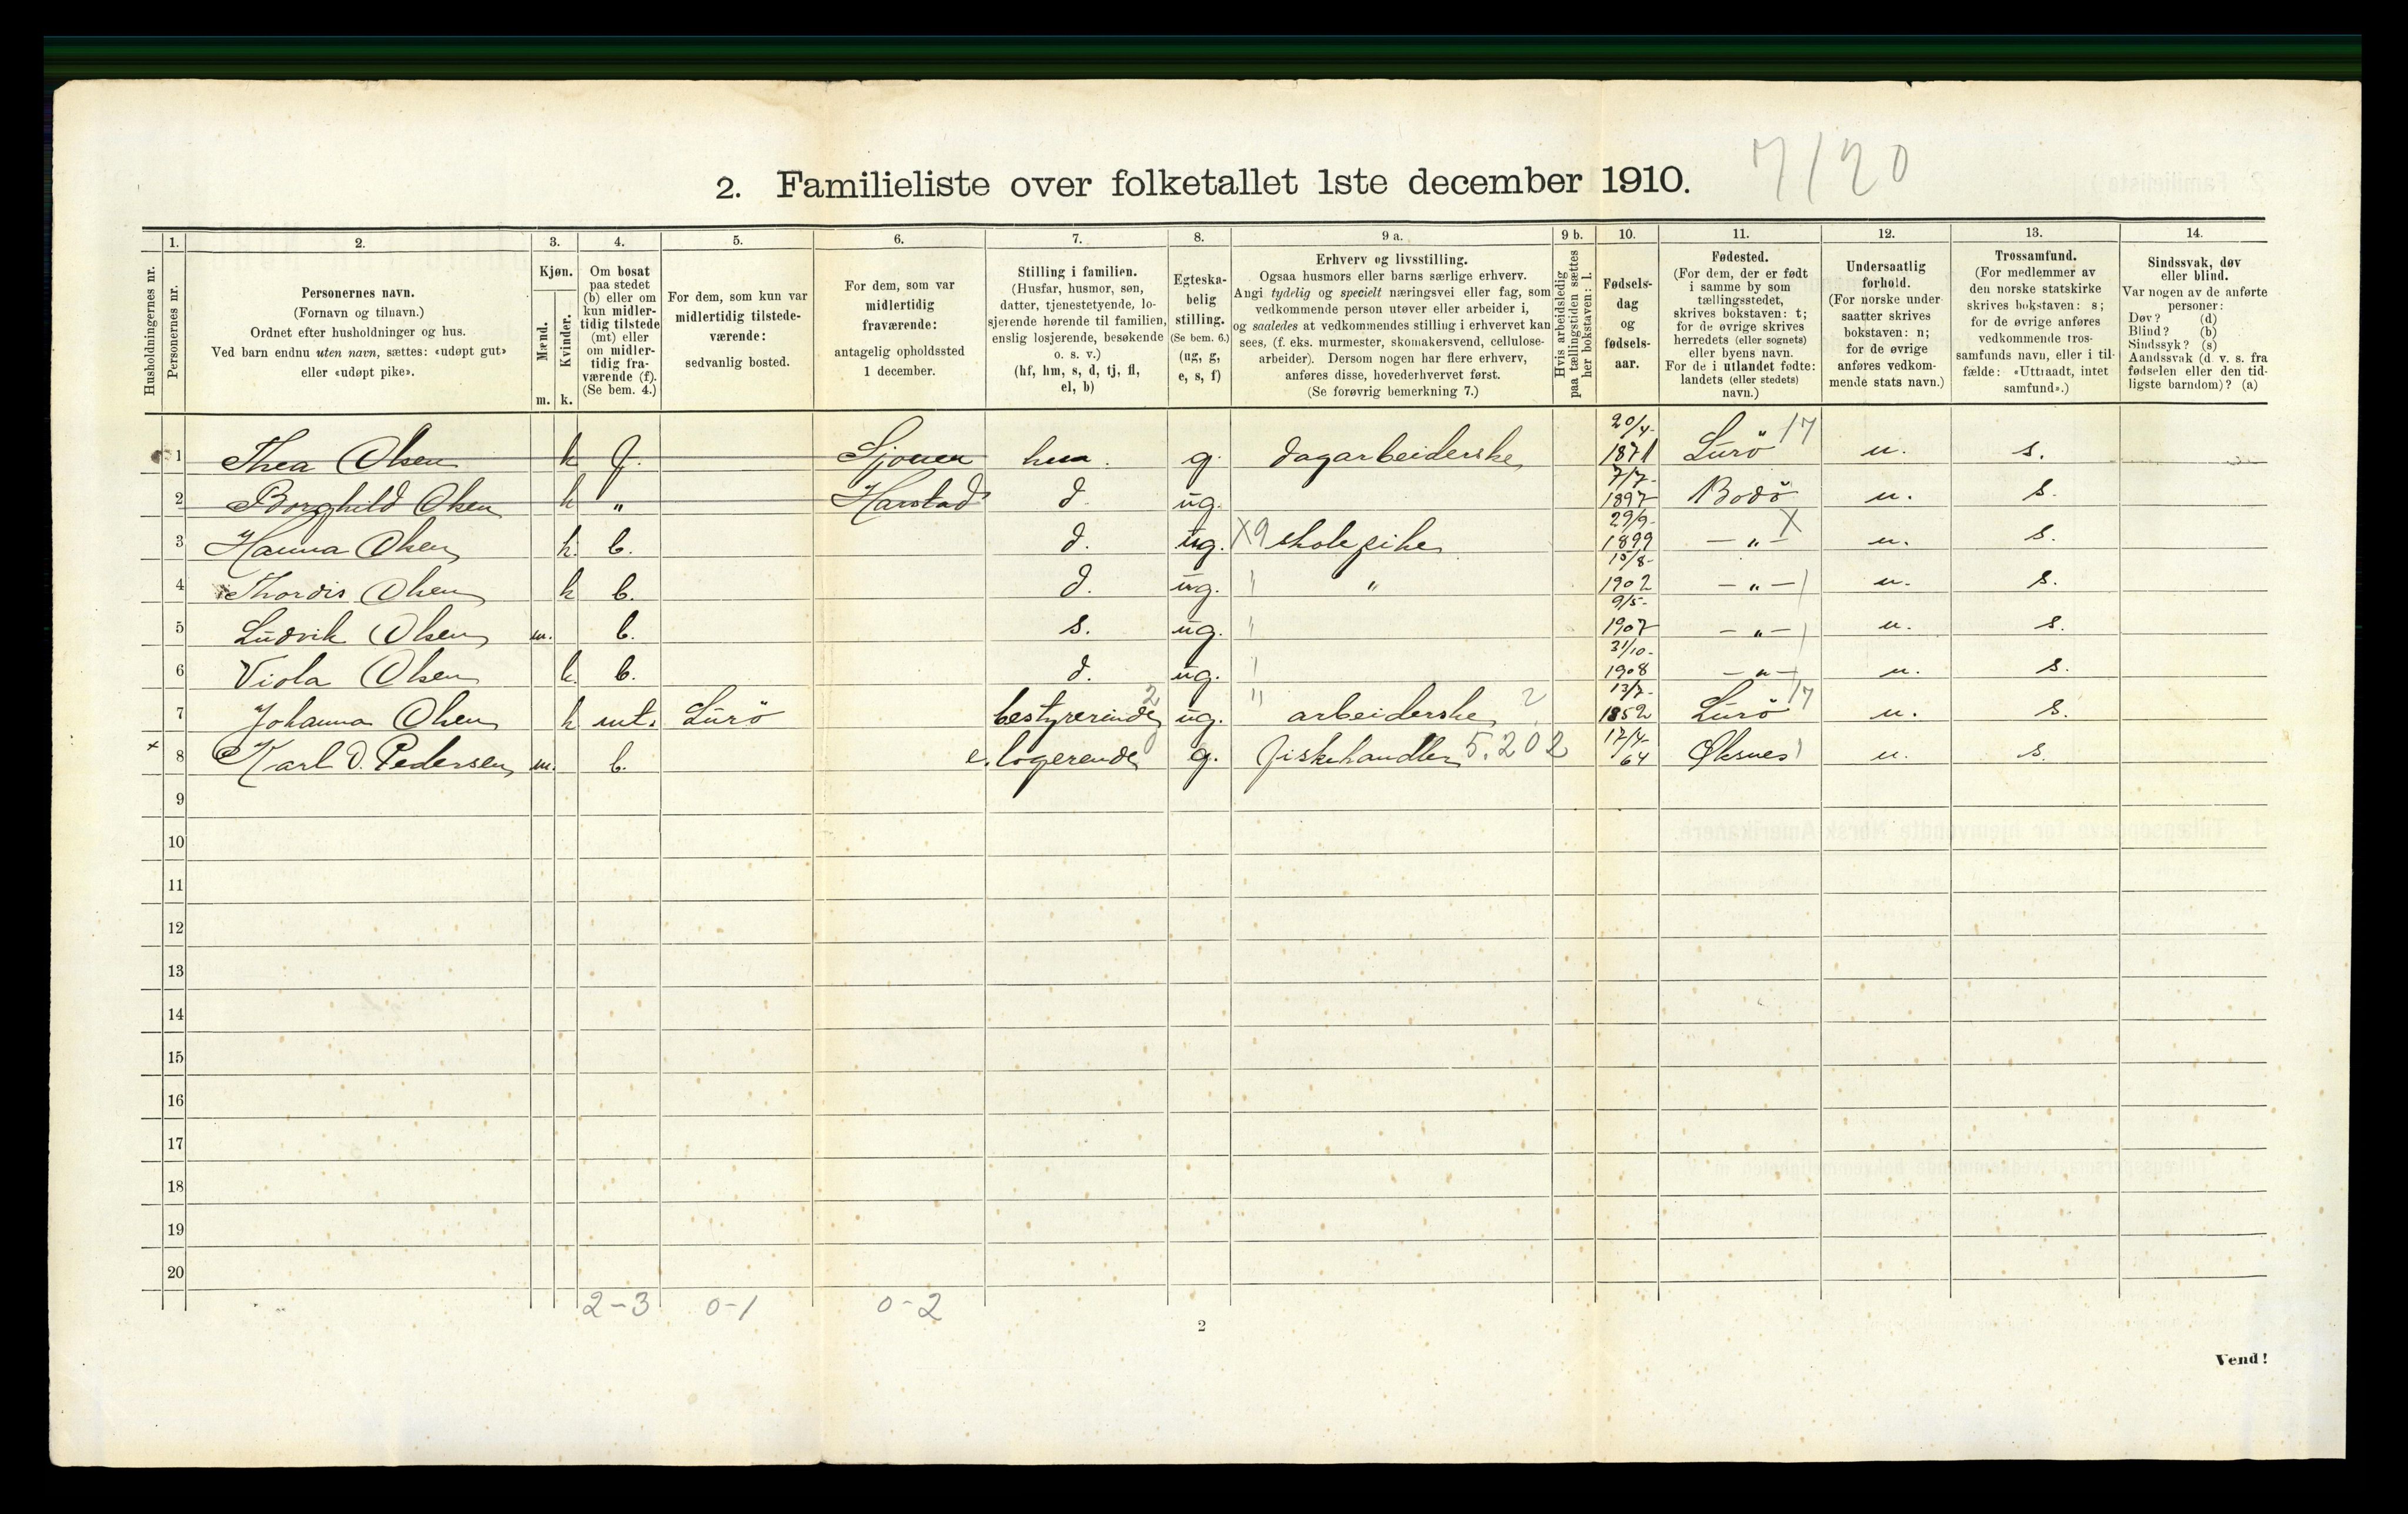 7/20
2. Familieliste over folketallet 1ste december 1910.
1. 2. 3. 4. 5. 6. 7. 8. 9 a. 9 b. 10. 11. 12. 13. 14.
Husholdningernes nr.
Personernes nr.
Personernes navn.
(Fornavn og tilnavn.)
Ordnet efter husholdninger og hus.
Ved barn endnu uten navn, sættes: «udøpt gut»
eller «udøpt pike».
Kjøn.
Mænd.
Kvinder.
m. k.
Om bosat
paa stedet
(b) eller om
kun midler-
tidig tilstede
(mt) eller
om midler-
tidig fra-
værende (f).
(Se bem. 4.)
For dem, som kun var
midlertidig tilstede-
værende:
sedvanlig bosted.
For dem, som var
midlertidig
fraværende:
antagelig opholdssted
1 december.
Stilling i familien.
(Husfar, husmor, søn,
datter, tjenestetyende, lo-
sjerende hørende til familien,
enslig losjerende, besøkende
o. s. v.)
(hf, hm, s, d, tj, fl,
el, b)
Egteska-
belig
stilling.
(Se bem. 6.)
(ug, g,
e, s, f)
Erhverv og livsstilling.
Ogsaa husmors eller barns særlige erhverv.
Angi tydelig og specielt næringsvei eller fag, som
vedkommende person utøver eller arbeider i,
og saaledes at vedkommendes stilling i erhvervet kan
sees, (f. eks. murmester, skomakersvend, cellulose-
arbeider). Dersom nogen har flere erhverv,
anføres disse, hovederhvervet først.
(Se forøvrig bemerkning 7.)
Hvis arbeidsledig
paa tællingstiden sættes
her bokstaven: l.
Fødsels-
dag
og
fødsels-
aar.
Fødested.
(For dem, der er født
i samme by som
tællingsstedet,
skrives bokstaven: t;
for de øvrige skrives
herredets (eller sognets)
eller byens navn.
For de i utlandet fødte:
landets (eller stedets)
navn.)
Undersaatlig
forhold.
(For norske under-
saatter skrives
bokstaven: n;
for de øvrige
anføres vedkom-
mende stats navn.)
Trossamfund.
(For medlemmer av
den norske statskirke
skrives bokstaven: s;
for de øvrige anføres
vedkommende tros-
samfunds navn, eller i til-
fælde: «Uttraadt, intet
samfund».)
Sindssvak, døv
eller blind.
Var nogen av de anførte
personer:
Døv? (d)
Blind? (b)
Sindssyk? (s)
Aandssvak (d. v. s. fra
fødselen eller den tid-
ligste barndom)? (a)
1 Thea Olsen k f. Sjonen g. dagarbeiderske 20/4- 1871 Lurö 17 n. s.
2 Borghild Olsen k " Harstad d. ug. 7/7- 1897 Bodö n. s.
3 Hanna Olsen k. b. d. ug. X9 skolepike 29/9- 1899 — " — X n. s.
4 Thordis Olsen k b. d. ug. " 15/8- 1902 — " — n. s.
5 Ludvik Olsen m. b. s. ug. 9/5- 1907 — " — n. s.
6 Viola Olsen k. b. d. ug. 31/10- 1908 — " — n. s.
7 Johanna Olsen k mt. Lurö bestyrerinde 2 ug. " arbeiderske 2 13/7- 1852 Lurö 17 n. s.
+ 8 Karl O. Pedersen m. b. e. logerende g. fiskehandler 5.202 17/4- 64 Øksnes n. s.
9
10
11
12
13
14
15
16
17
18
19
20
2-3 0-1 0-2
2
Vend!